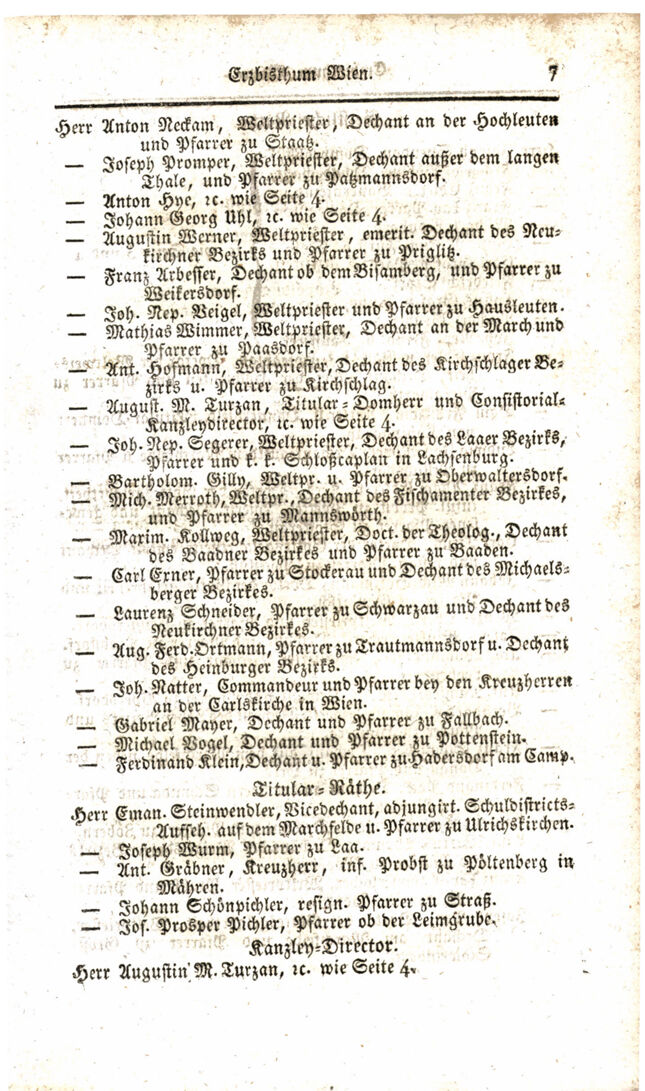 Erzbisthum Wien. 7
Herr Anton Neckam, Weltpriester, Dechant an der Hochleuten
und Pfarrer zu Staatz.
— Joseph Promper, Weltpriester, Dechant außer dem langen
Thale, und Pfarrer zu Patzmannsdorf.
— Anton Hye, ꝛc. wie Seite 4.
— Johann Georg Uhl, ꝛc. wie Seite 4.
— Augustin Werner, Weltpriester, emerit. Dechant des Neu-
kirchner Bezirks und Pfarrer zu Priglitz.
— Franz Arbesser, Dechant ob dem Bisamberg, und Pfarrer zu
Weikersdorf.
— Joh. Nep. Veigel, Weltpriester und Pfarrer zu Hausleuten.
— Mathias Wimmer, Weltpriester, Dechant an der March und
Pfarrer zu Paasdorf.
— Ant. Hofmann, Weltpriester, Dechant des Kirchschlager Be-
zirks u. Pfarrer zu Kirchschlag.
— August. M. Turzan, Titular-Domherr und Consistorial-
Kanzleydirector, ꝛc. wie Seite 4.
— Joh. Nep. Segerer, Weltpriester, Dechant des Laaer Bezirks,
Pfarrer und k. k. Schloßcaplan in Lachsenburg.
— Bartholom. Gilly, Weltpr. u. Pfarrer zu Oberwaltersdorf.
— Mich. Merroth, Weltpr., Dechant des Fischamenter Bezirkes,
und Pfarrer zu Mannswörth.
— Maxim. Kollweg, Weltpriester, Doct. der Theolog., Dechant
des Baadner Bezirkes und Pfarrer zu Baaden.
— Carl Exner, Pfarrer zu Stockerau und Dechant des Michaels-
berger Bezirkes.
— Laurenz Schneider, Pfarrer zu Schwarzau und Dechant des
Neukirchner Bezirkes.
— Aug. Ferd. Ortmann, Pfarrer zu Trautmannsdorf u. Dechant
des Heinburger Bezirks.
— Joh. Natter, Commandeur und Pfarrer bey den Kreuzherren
an der Carlskirche in Wien.
— Gabriel Mayer, Dechant und Pfarrer zu Fallbach.
— Michael Vogel, Dechant und Pfarrer zu Pottenstein.
— Ferdinand Klein, Dechant u. Pfarrer zu Hadersdorf am Camp.
Titular-Räthe.
Herr Eman. Steinwendler, Vicedechant, adjungirt. Schuldistricts-
Aufseh. auf dem Marchfelde u. Pfarrer zu Ulrichskirchen.
— Joseph Wurm, Pfarrer zu Laa.
— Ant. Gräbner, Kreuzherr, inf. Probst zu Pöltenberg in
Mähren.
— Johann Schönpichler, resign. Pfarrer zu Straß.
— Jos. Prosper Pichler, Pfarrer ob der Leimgrube.
Kanzley-Director.
Herr Augustin M. Turzan, ꝛc. wie Seite 4.